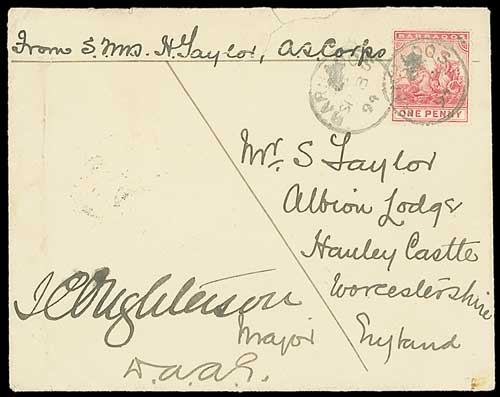 From S. Mrs. H. Taylor, A.S. Corps
BARBADOS
ONE PENNY
Mr. S Taylor
Albion Lodge
Hanley Castle
Worcestershire
England
Major
D.A.A.G.